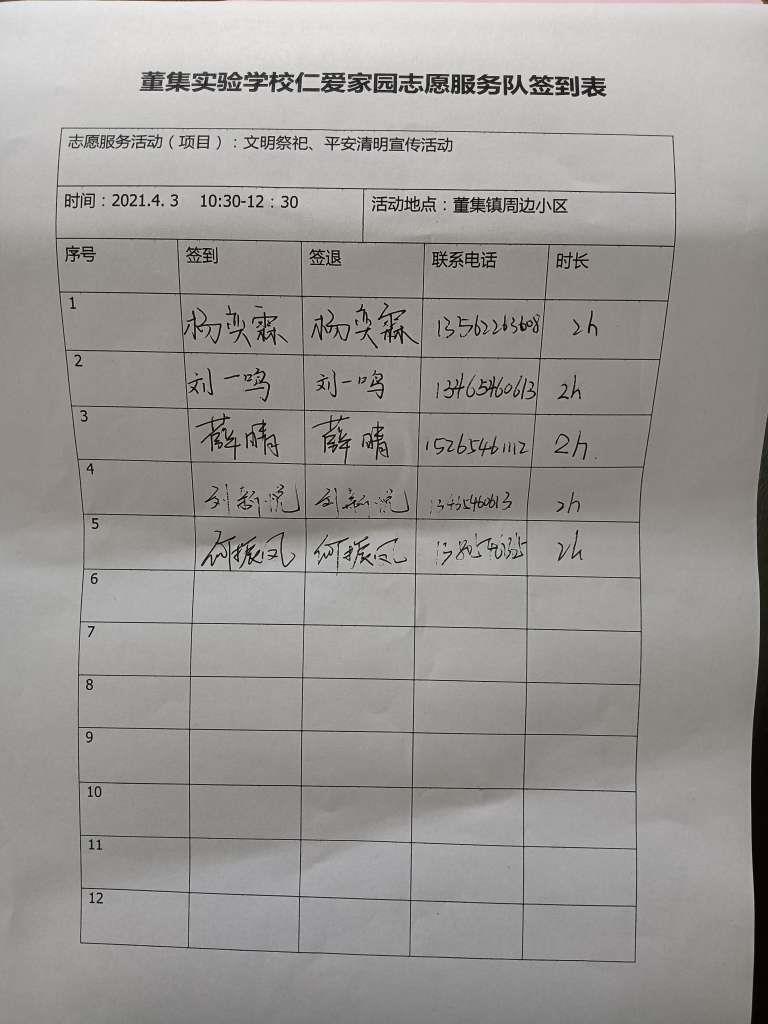 董集实验学校仁爱家园志愿服务队签到表
志愿服务活动（项目）：文明祭祀、平安清明宣传活动
时间：2021.4. 3 10:30-12：30 活动地点：董集镇周边小区
序号 签到 签退 联系电话 时长
1 杨奕霖 杨奕霖 13562263608 2h
2 刘一鸣 刘一鸣 13465460613 2h
3 薛晴 薛晴 15265461112 2h.
4 刘新悦 刘新悦 13465460613 2h
5 何振凤 何振凤 2h
6
7
8
9
10
11
12